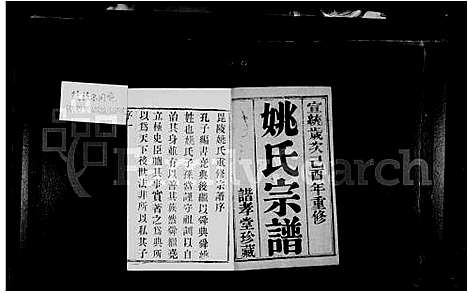 宣統歲次己酉年重修
姚氏宗譜
諧孝堂珍藏
毘陵姚氏重修宗譜序
孔子編書堯典後繼以舜典舜姚
姓也姚氏子孫當謹守祖訓以自
治其身並有以善其族然舜繼堯
立極史臣臚其事實著之為典所
以為天下後世法非所以私其子
序 一